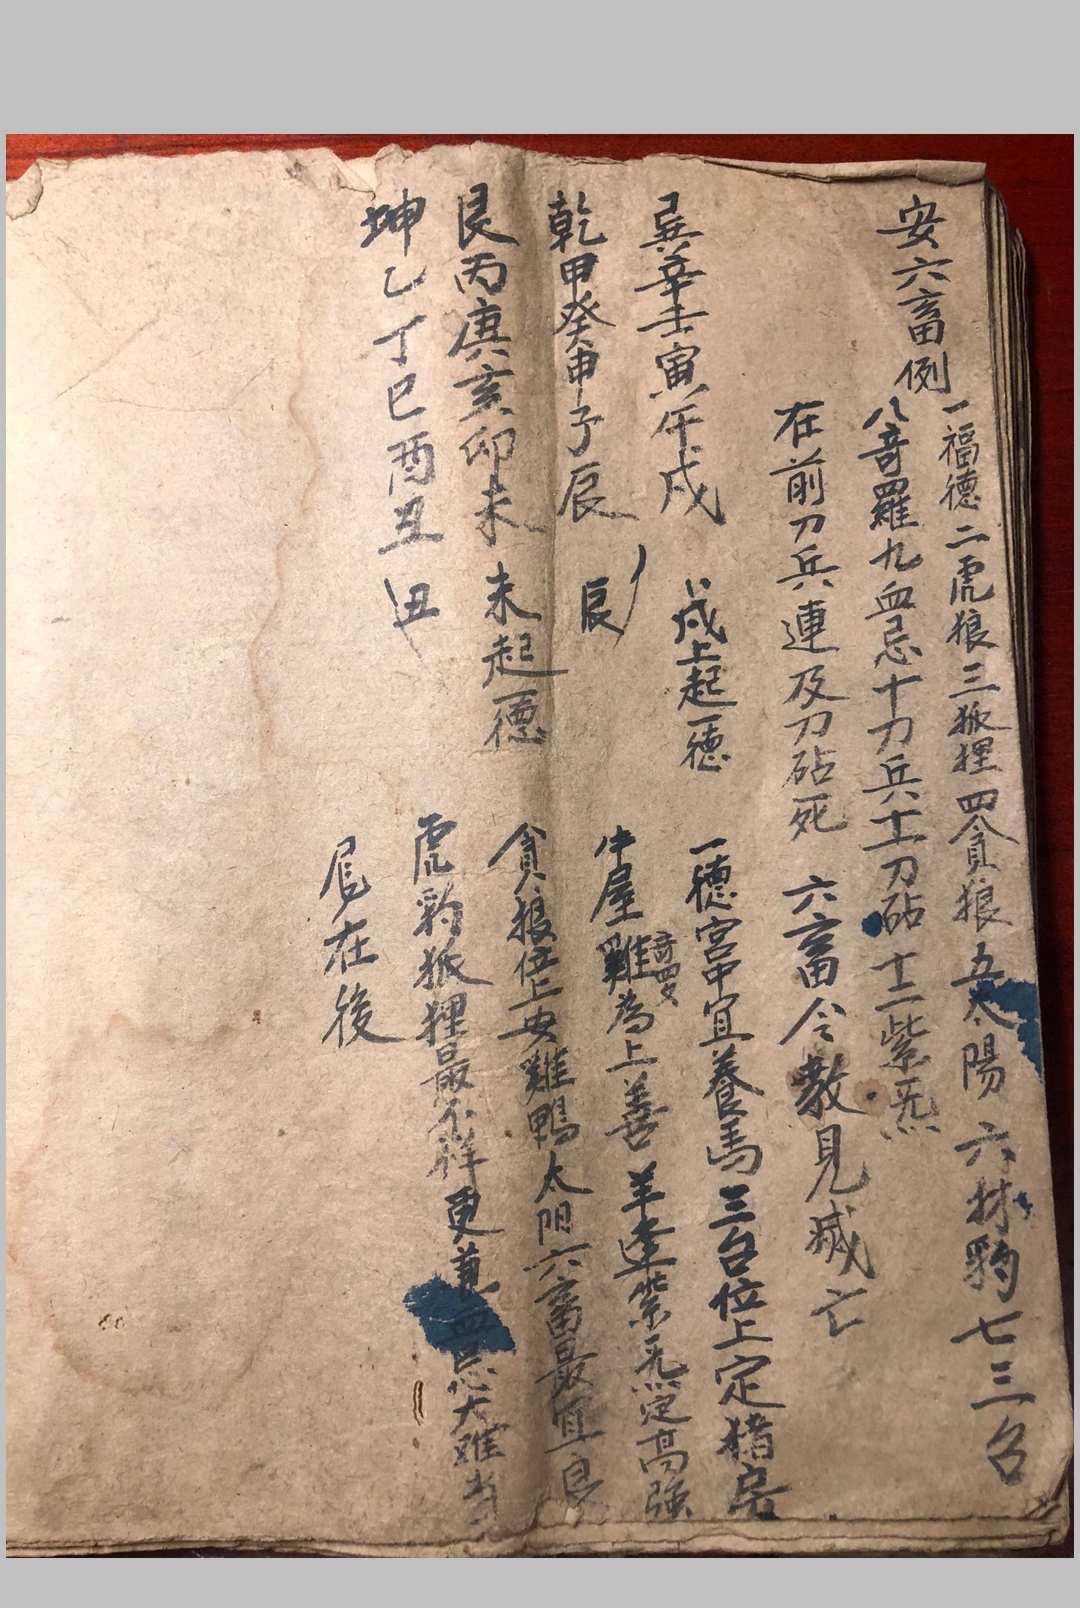 安六畜例
一福德二虎狼三狐狸四貪狼五太陽六材豹七三台
八奇羅九血忌十刀兵士刀砧士二紫炁
在前刀兵連及刀砧死六畜令數見减亡
巽辛壬寅午戌
戌上起一德
乾甲癸申子辰
辰
艮丙庚亥卯未
未起一德
坤乙丁巳酉丑
丑
一德宮中宜養馬三台位上定猪房
牛屋奇罗雞為上善羊逢紫炁定高強
貪狼位上安雞鴨太阳六畜最宜良
虎豹狐狸最不祥更兼血忌大难当
尾在後